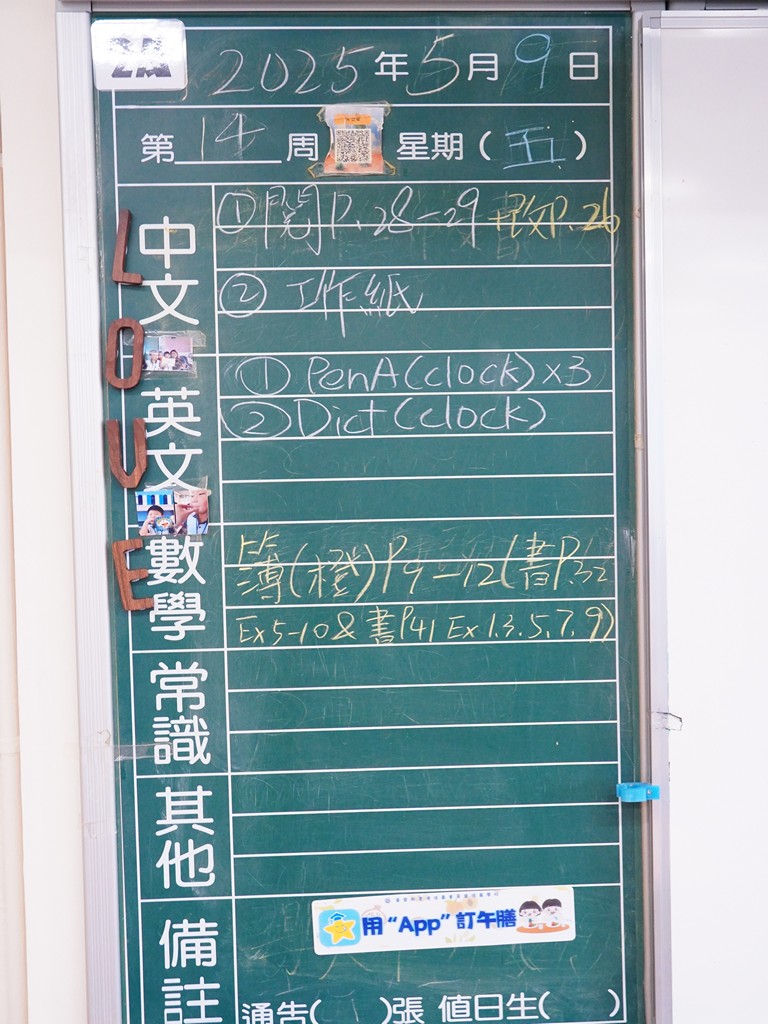 2025年5月9日
第14周 星期(五)
中文
①閱P.28-29 P.26
②工作紙
LOVE
英文
①PenA(clock)x3
②Dict(clock)
數學
簿(橙)P9-12(書P.32
Ex5-10&書P41 Ex1.3.5.7.9)
常識
其他
備註
用“App”訂午膳
通告( )張 值日生( )